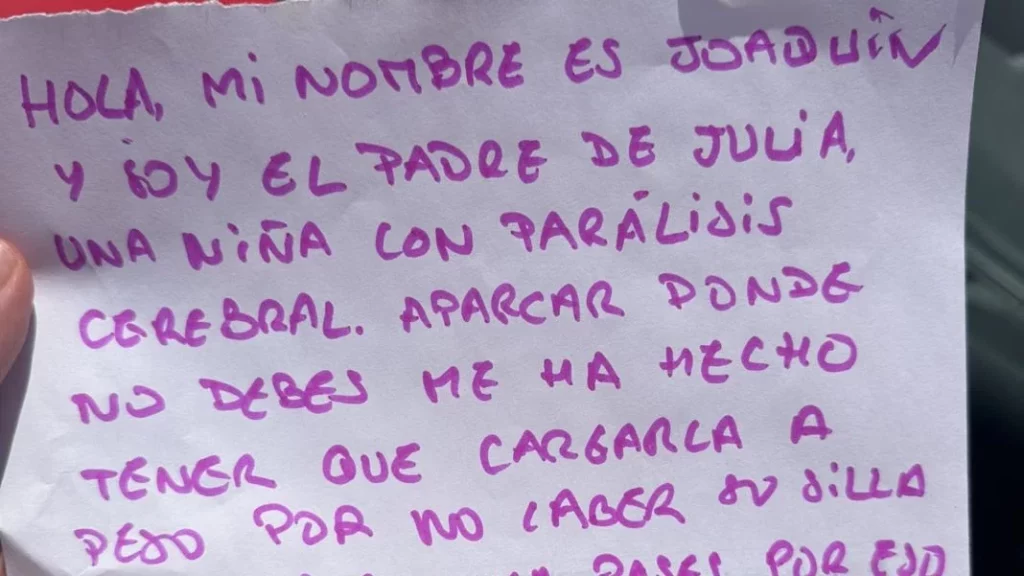 HOLA, Mi NOMBRE ES JOAQUÍN
Y SOY EL PADRE DE JULiA,
UNA NiÑA CON PARÁLiSiS
CEREBRAL. APARCAR DONDE
NO DEBES ME HA HECHO
TENER QUE CARGARLA A
PESO POR NO CABER SU SiLLA
PASES POR ESO